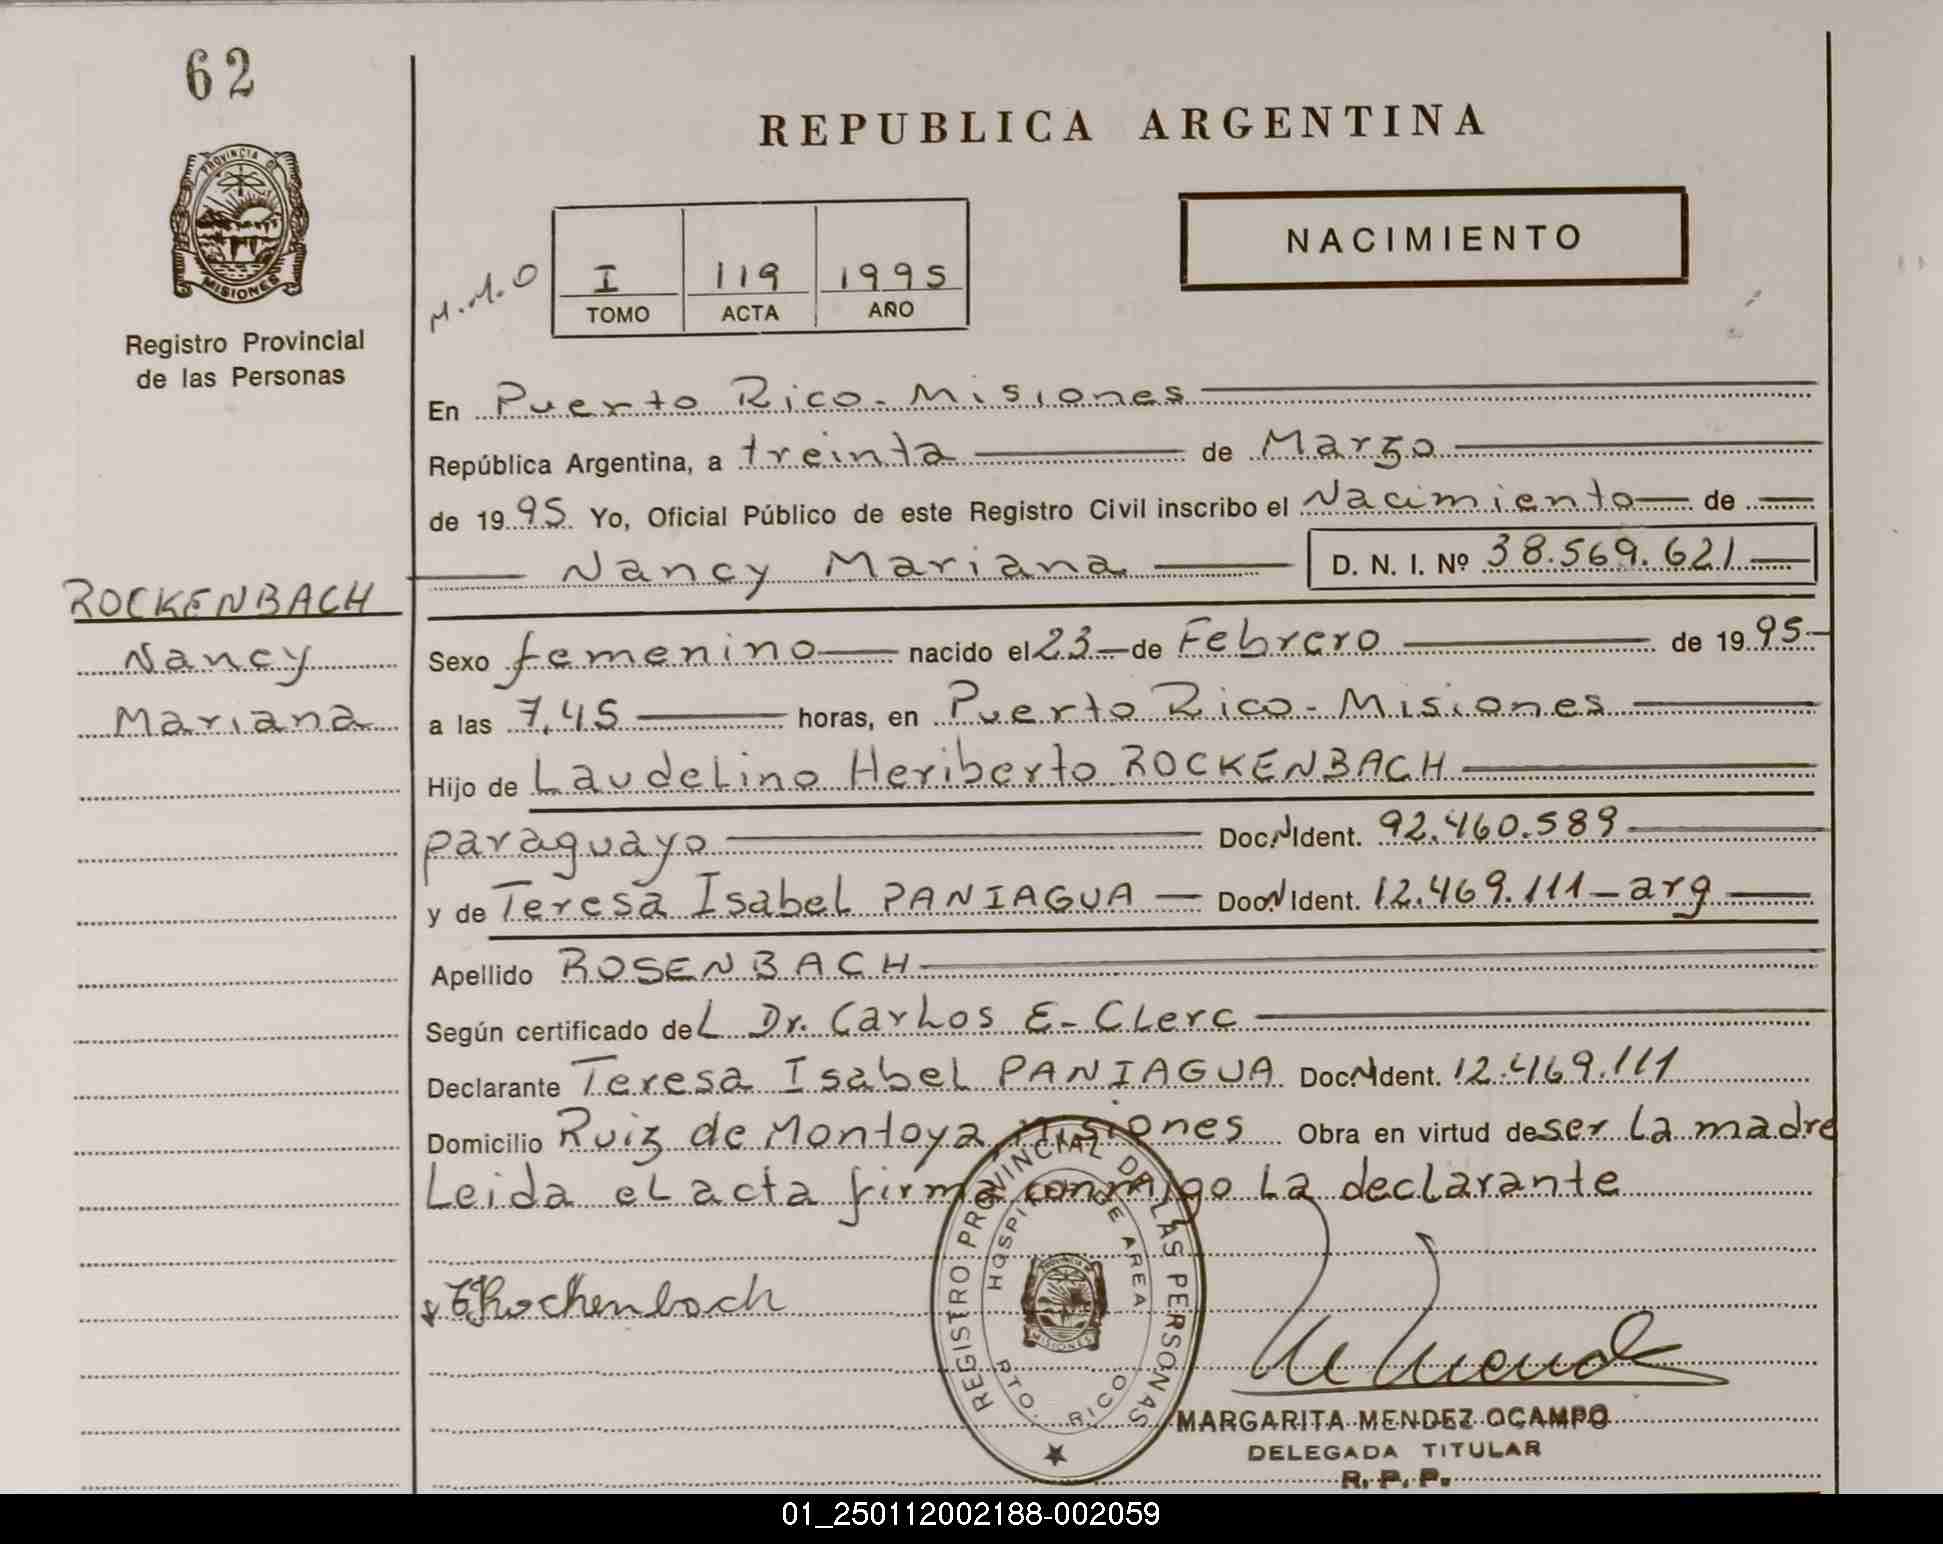 62
REPUBLICA ARGENTINA
PROVINCIA DE MISIONES
Registro Provincial
de las Personas
M.M.O
I 119 1995
TOMO ACTA AÑO
NACIMIENTO
En Puerto Rico - Misiones
República Argentina, a treinta de Marzo
de 1995 Yo, Oficial Público de este Registro Civil inscribo el Nacimiento de
Nancy Mariana D. N. I. Nº 38.569.621
ROCKENBACH
Nancy
Mariana
Sexo femenino nacido el 23 de Febrero de 1995
a las 7,45 horas, en Puerto Rico - Misiones
Hijo de Laudelino Heriberto ROCKENBACH
paraguayo Doc. N Ident. 92.460.589
y de Teresa Isabel PANIAGUA Doc. N Ident. 12.469.111 - arg
Apellido ROSENBACH
Según certificado del Dr. Carlos E. Clerc
Declarante Teresa Isabel PANIAGUA Doc. N Ident. 12.469.111
Domicilio Ruiz de Montoya Misiones Obra en virtud de ser la madre
Leida el acta firma conmigo la declarante
Rockenbach
REGISTRO PROVINCIAL DE LAS PERSONAS
HOSPITAL DE AREA
MISIONES
PTO. RICO
MARGARITA MENDEZ OCAMPO
DELEGADA TITULAR
R. P. P.
01_250112002188-002059